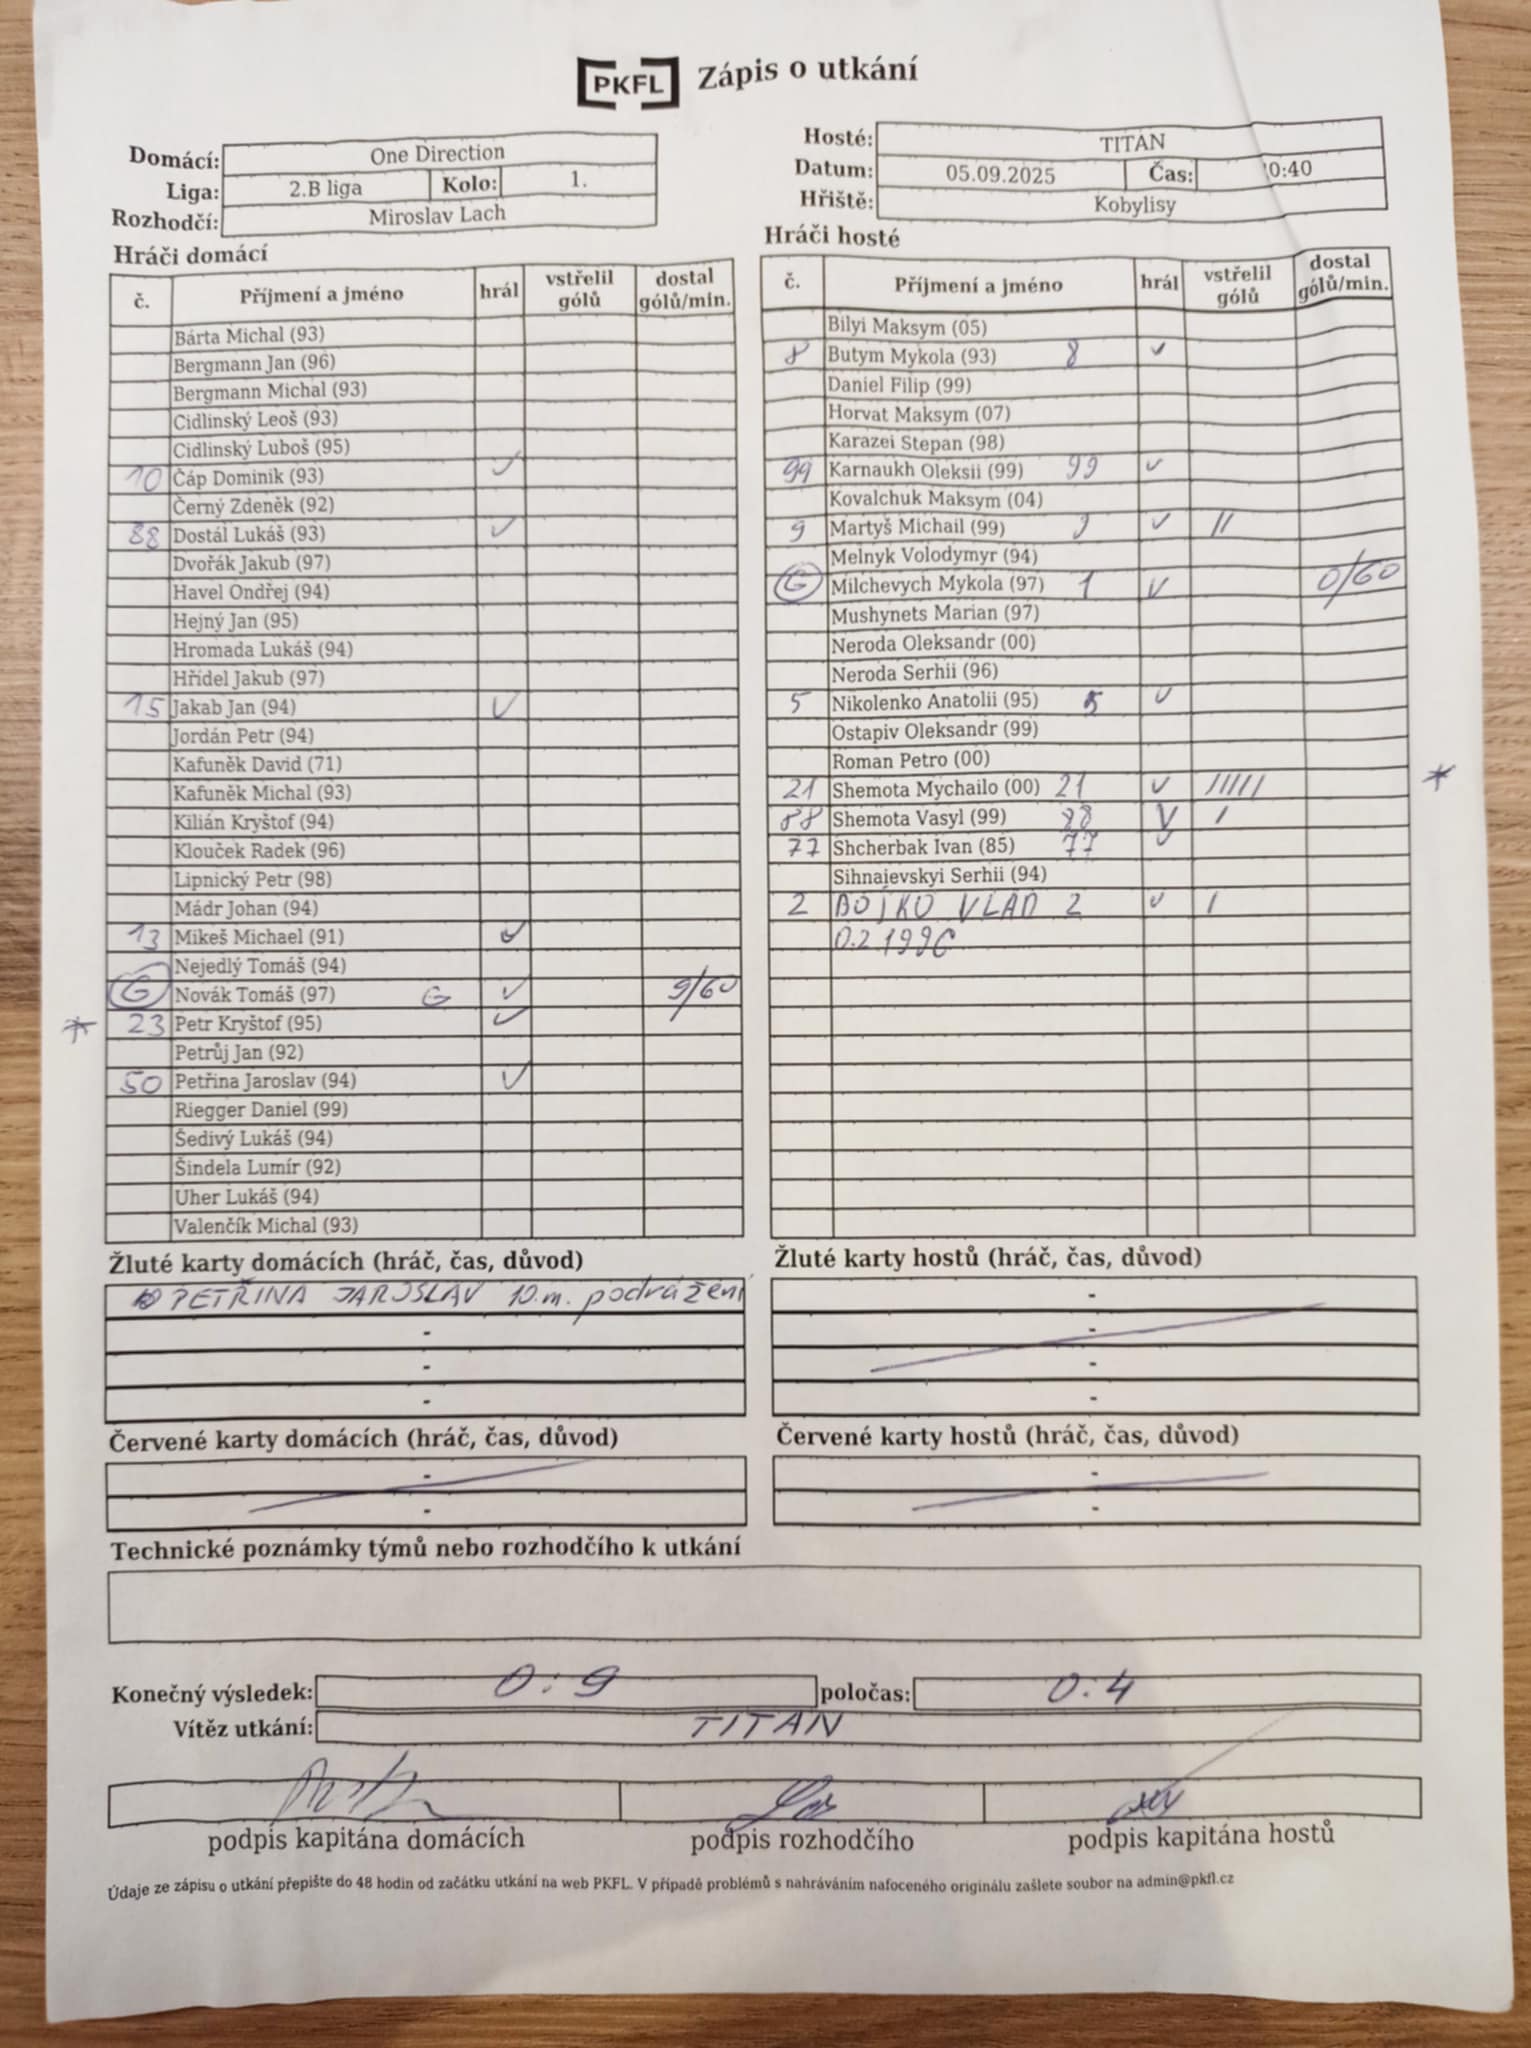 PKFL Zápis o utkání
Domácí: One Direction
Liga: 2.B liga Kolo: 1.
Rozhodčí: Miroslav Lach
Hosté: TITAN
Datum: 05.09.2025 Čas: 0:40
Hřiště: Kobylisy
Hráči domácí
č. Příjmení a jméno hrál vstřelil gólů dostal gólů/min.
Bárta Michal (93)
Bergmann Jan (96)
Bergmann Michal (93)
Cidlinský Leoš (93)
Cidlinský Luboš (95)
10 Čáp Dominik (93) ✓
Černý Zdeněk (92)
88 Dostál Lukáš (93) ✓
Dvořák Jakub (97)
Havel Ondřej (94)
Hejný Jan (95)
Hromada Lukáš (94)
Hřídel Jakub (97)
15 Jakab Jan (94) ✓
Jordán Petr (94)
Kafuněk David (71)
Kafuněk Michal (93)
Kilián Kryštof (94)
Klouček Radek (96)
Lipnický Petr (98)
Mádr Johan (94)
13 Mikeš Michael (91) ✓
Nejedlý Tomáš (94)
G Novák Tomáš (97) G ✓ 9/60
* 23 Petr Kryštof (95) ✓
Petrůj Jan (92)
50 Petřina Jaroslav (94) ✓
Riegger Daniel (99)
Šedivý Lukáš (94)
Šindela Lumír (92)
Uher Lukáš (94)
Valenčík Michal (93)
Hráči hosté
č. Příjmení a jméno hrál vstřelil gólů dostal gólů/min.
Bilyi Maksym (05)
8 Butym Mykola (93) 8 ✓
Daniel Filip (99)
Horvat Maksym (07)
Karazei Stepan (98)
99 Karnaukh Oleksii (99) 99 ✓
Kovalchuk Maksym (04)
9 Martyš Michail (99) 9 ✓ //
Melnyk Volodymyr (94)
G Milchevych Mykola (97) 1 ✓ 0/60
Mushynets Marian (97)
Neroda Oleksandr (00)
Neroda Serhii (96)
5 Nikolenko Anatolii (95) 5 ✓
Ostapiv Oleksandr (99)
Roman Petro (00)
21 Shemota Mychailo (00) 21 ✓ ///// *
88 Shemota Vasyl (99) 88 ✓ /
77 Shcherbak Ivan (85) 77 ✓
Sihnaievskyi Serhii (94)
2 BOJKO VLAD 2 ✓ /
0.2 1996
Žluté karty domácích (hráč, čas, důvod)
PETŘINA JAROSLAV 10.m. podrážení
-
-
-
Žluté karty hostů (hráč, čas, důvod)
-
-
-
-
Červené karty domácích (hráč, čas, důvod)
-
-
Červené karty hostů (hráč, čas, důvod)
-
-
Technické poznámky týmů nebo rozhodčího k utkání
Konečný výsledek: 0:9 poločas: 0:4
Vítěz utkání: TITAN
podpis kapitána domácích podpis rozhodčího podpis kapitána hostů
Údaje ze zápisu o utkání přepište do 48 hodin od začátku utkání na web PKFL. V případě problémů s nahráváním nafoceného originálu zašlete soubor na admin@pkfl.cz